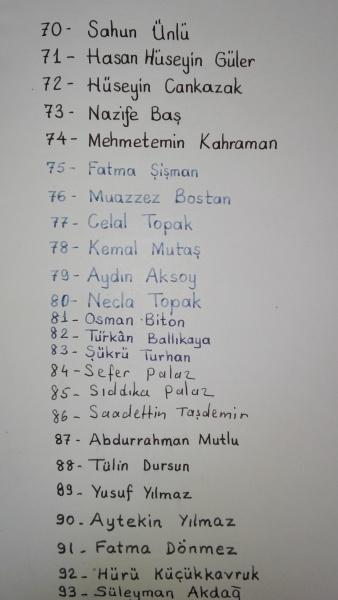 70- Sahun Ünlü
71- Hasan Hüseyin Güler
72- Hüseyin Cankazak
73- Nazife Baş
74- Mehmetemin Kahraman
75- Fatma Şişman
76- Muazzez Bostan
77- Celal Topak
78- Kemal Mutaş
79- Aydın Aksoy
80- Necla Topak
81- Osman Biton
82- Türkân Ballıkaya
83- Şükrü Turhan
84- Sefer Palaz
85- Sıddıka Palaz
86- Saadettin Taşdemir
87- Abdurrahman Mutlu
88- Tülin Dursun
89- Yusuf Yılmaz
90- Aytekin Yılmaz
91- Fatma Dönmez
92- Hürü Küçükkavruk
93- Süleyman Akdağ